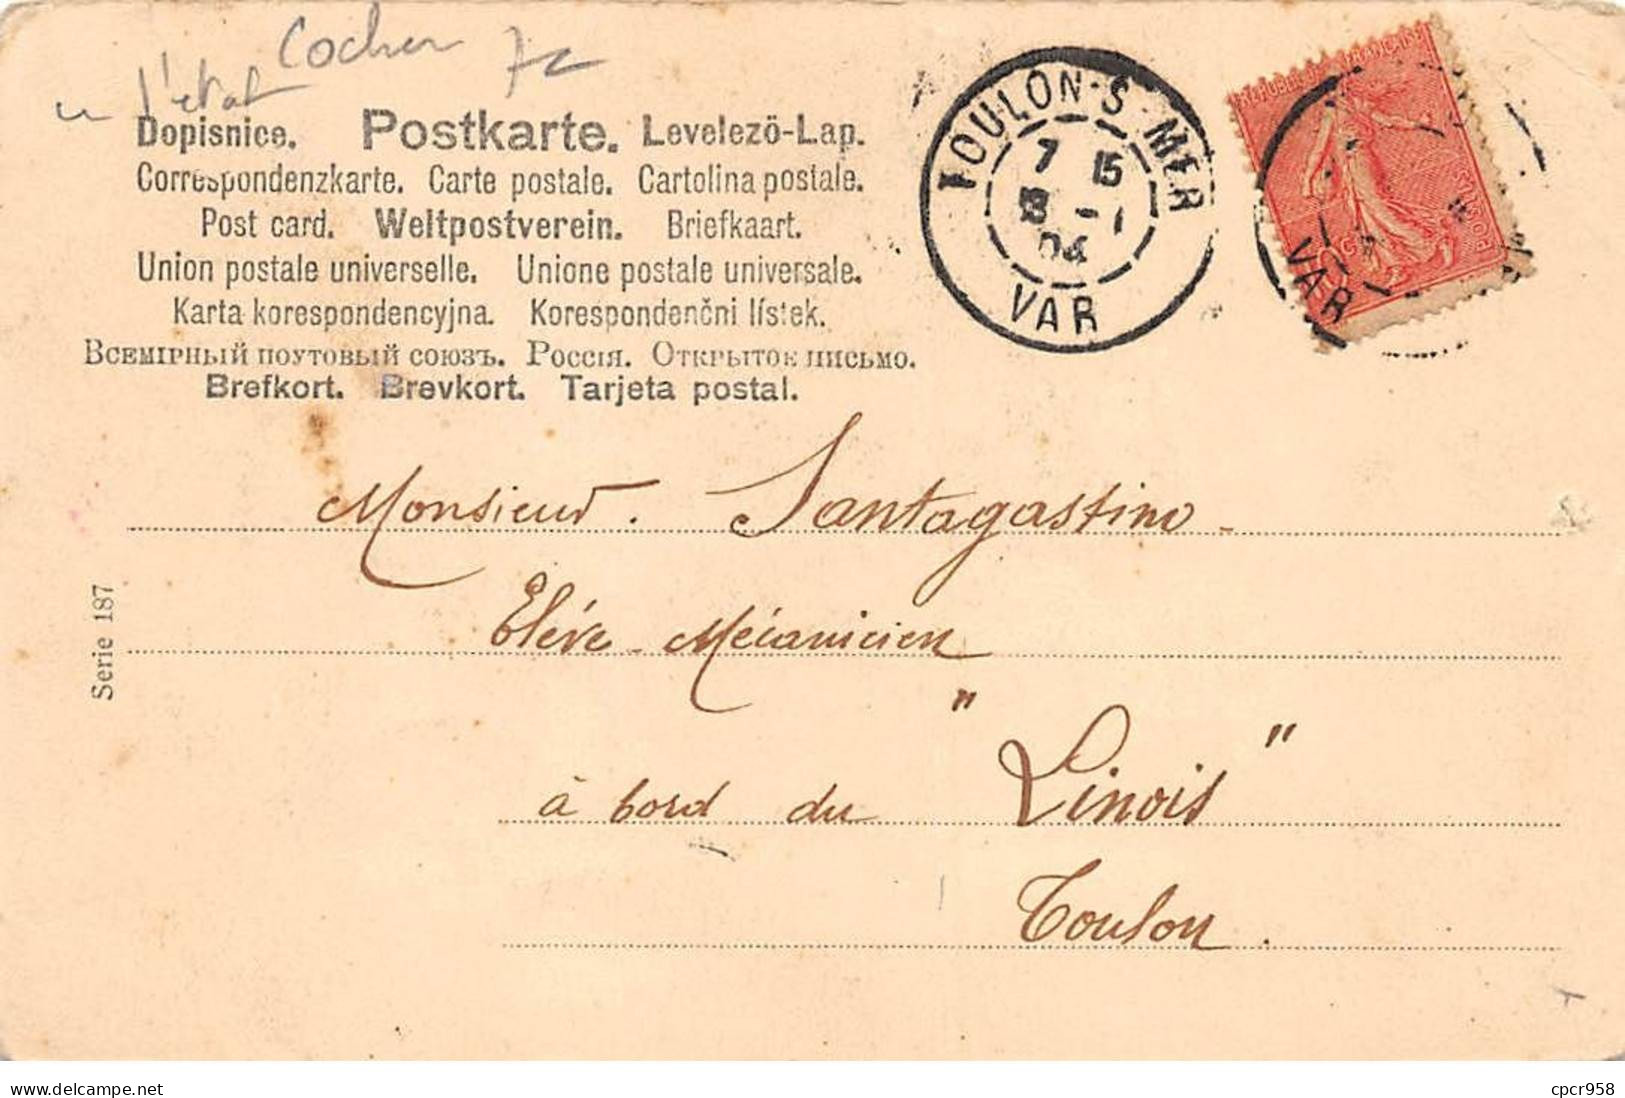 Cocher
l'état
Dopisnice. Postkarte. Levelező-Lap.
Correspondenzkarte. Carte postale. Cartolina postale.
Post card. Weltpostverein. Briefkaart.
Union postale universelle. Unione postale universale.
Karta korespondencyjna. Korespondenční lístek.
Всемірный почтовый союзъ. Россія. Открытое письмо.
Brefkort. Brevkort. Tarjeta postal.
TOULON-S-MER
7 15
-1
04
VAR
VAR
Monsieur. Santagastino-
Elève-Mécanicien
à bord du "Linois"
Toulon.
Serie 187
www.delcampe.net
cpcr958